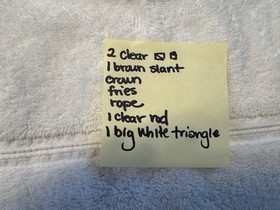 2 clear
1 brown slant
crown
fries
rope
1 clear rod
1 big white triangle